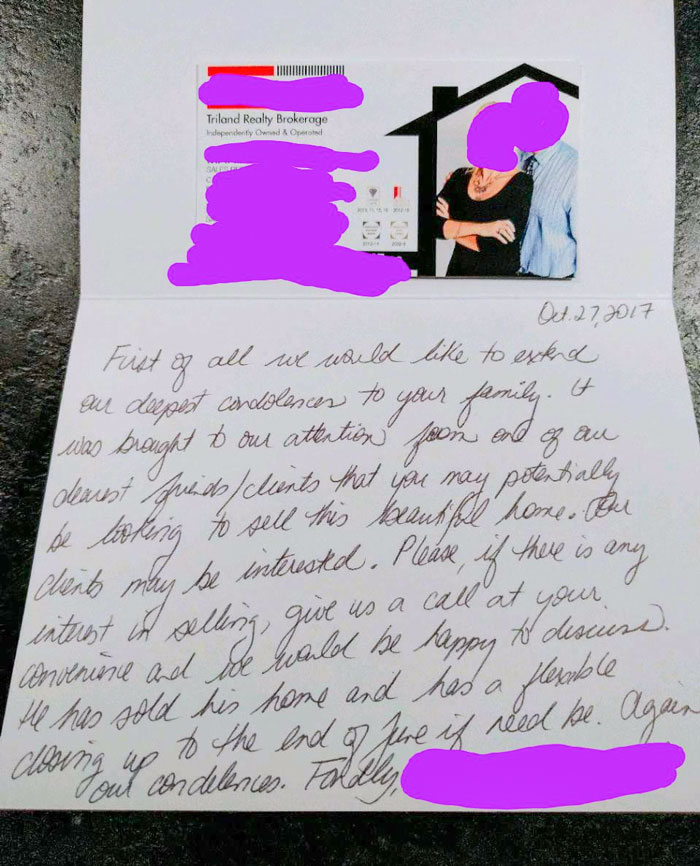 Triland Realty Brokerage
Independently Owned & Operated
Oct. 27, 2017
First of all we would like to extend
our deepest condolences to your family. It
was brought to our attention from one of our
dearest friends/clients that you may potentially
be looking to sell this beautiful home. Our
clients may be interested. Please, if there is any
interest in selling, give us a call at your
convenience and we would be happy to discuss.
He has sold his home and has a flexible
closing up to the end of June if need be. Again
our condolences. Fondly,